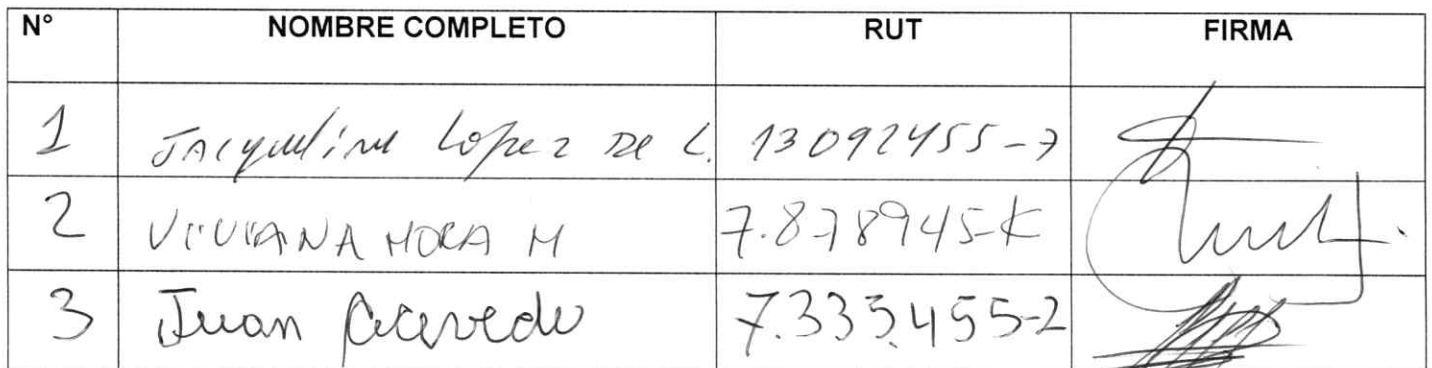 N° NOMBRE COMPLETO RUT FIRMA
1 Jacqueline Lopez De L. 13092455-7
2 VIVIANA MORA M 7.878945-K
3 Juan Acevedo 7.335.455-2